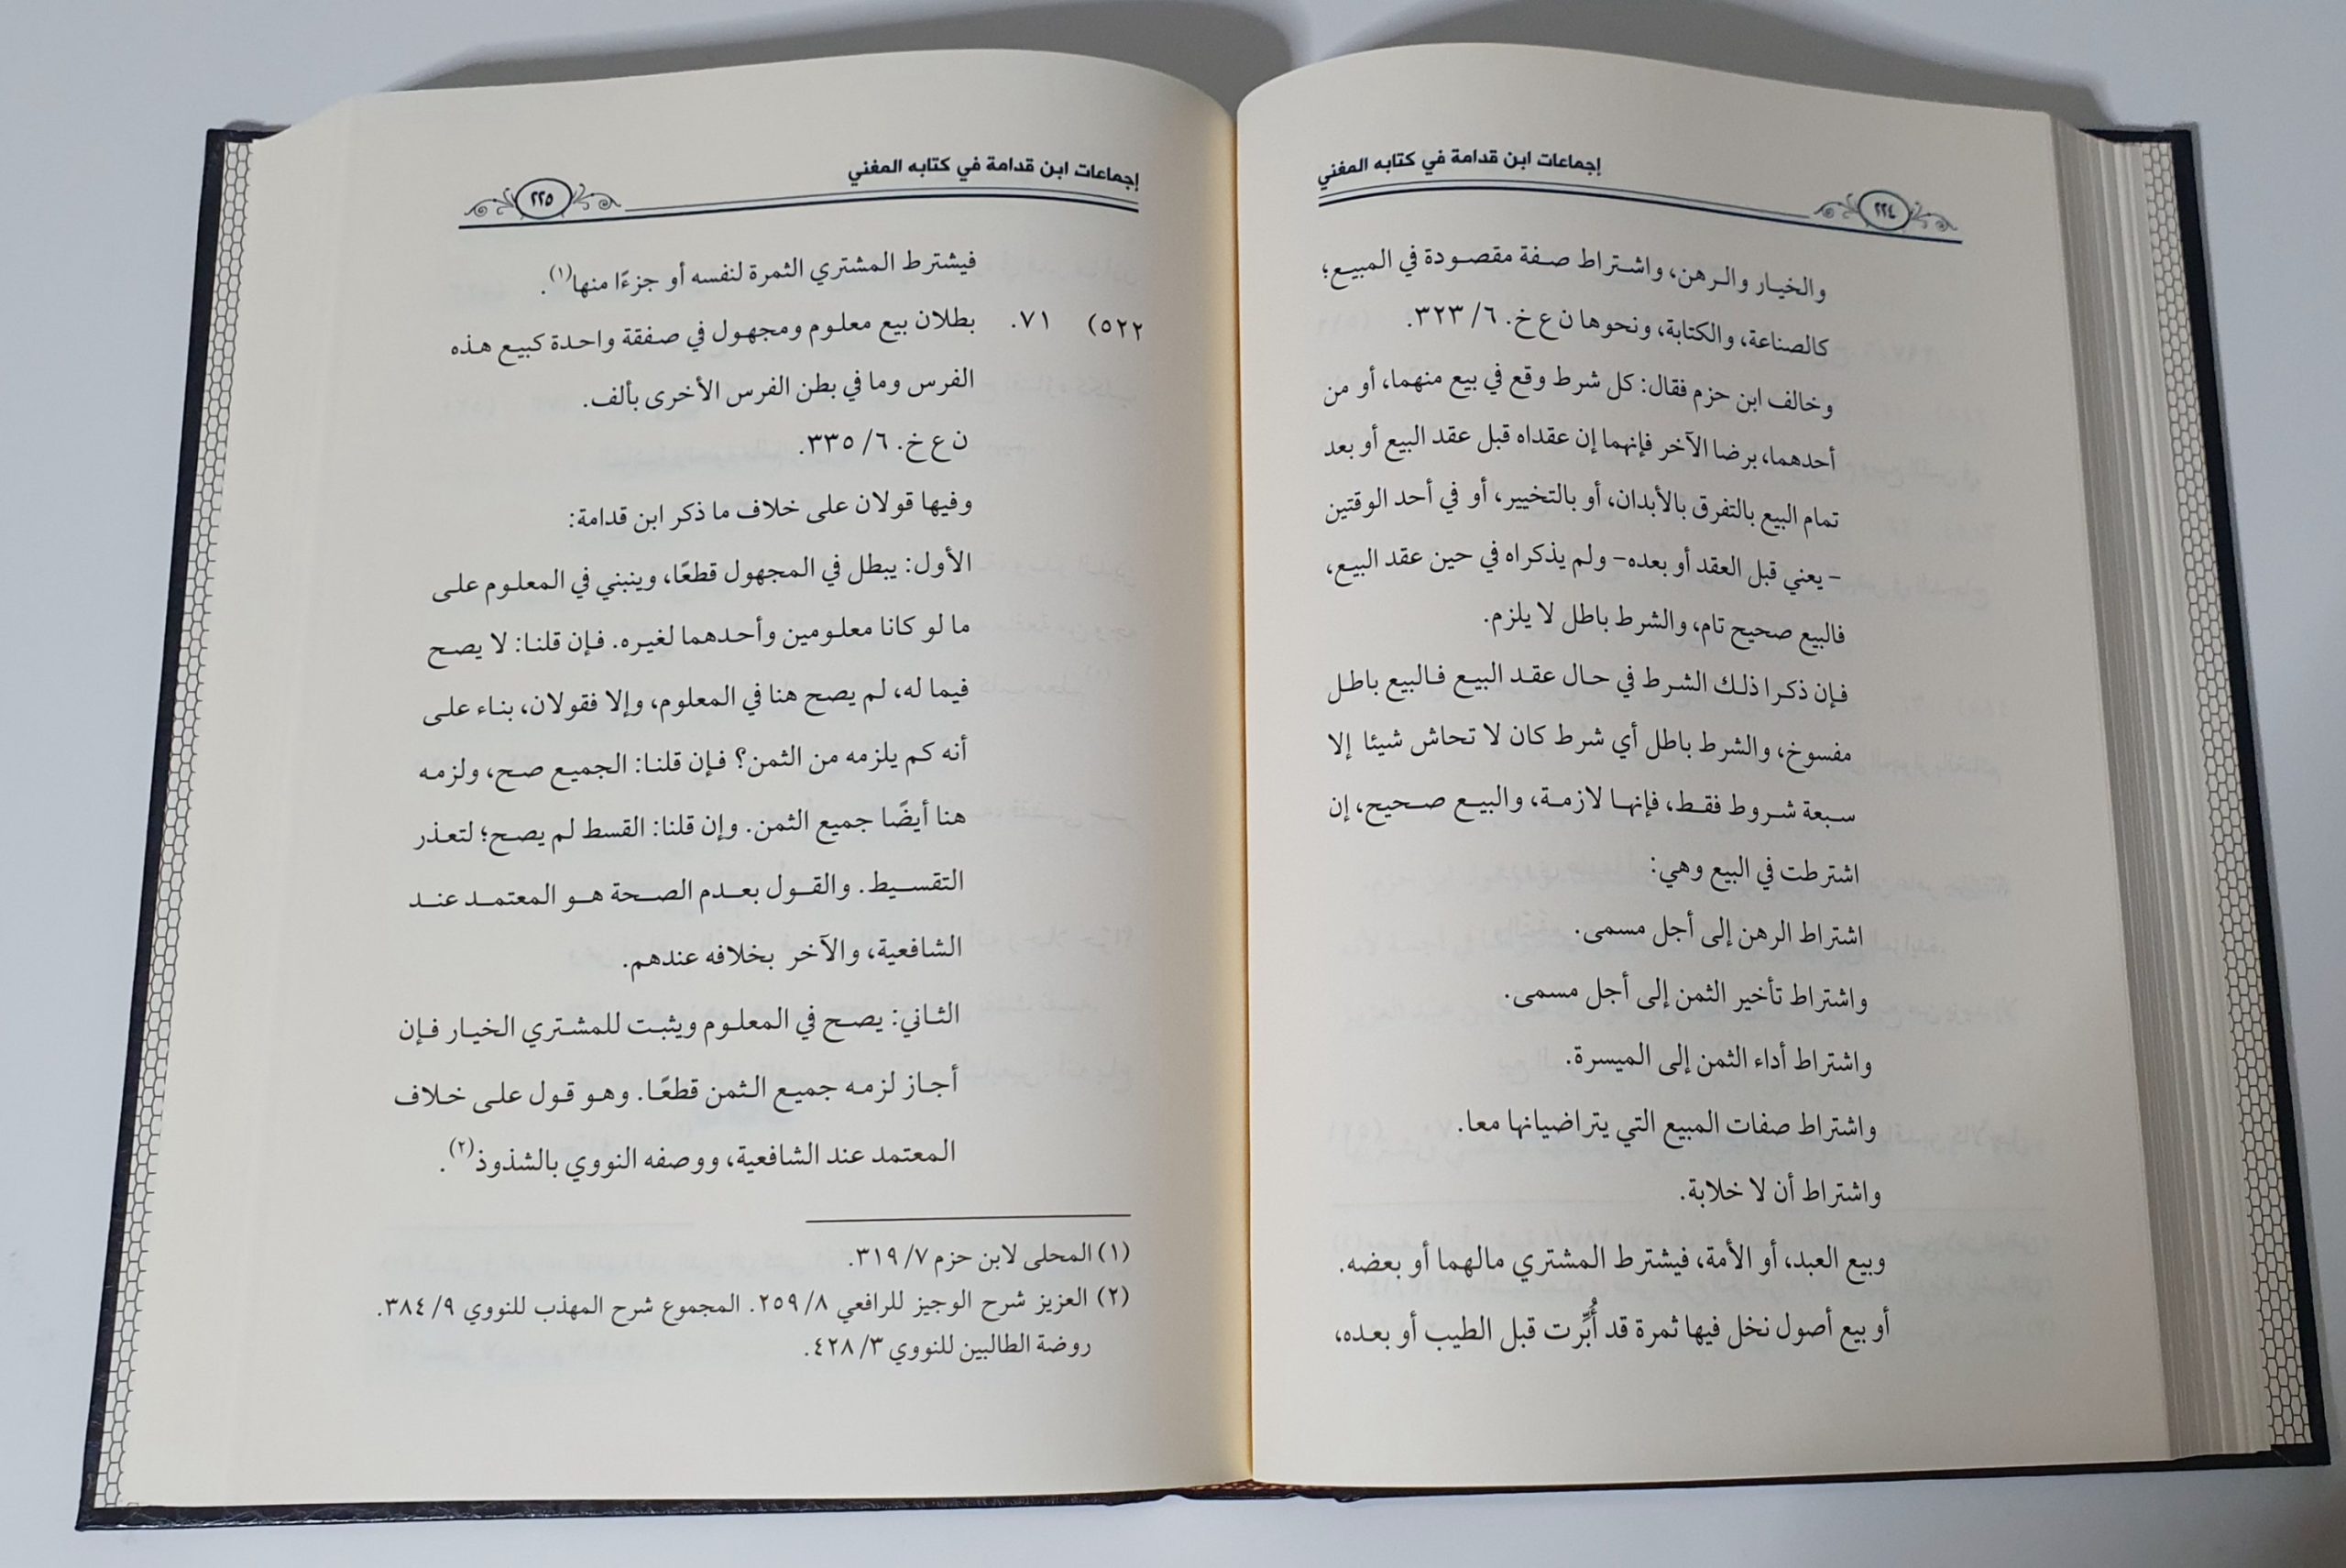 إجماعات ابن قدامة في كتابه المغني
٢٢٤
والخيار والرهن، واشتراط صفة مقصودة في المبيع؛
كالصناعة، والكتابة، ونحوها ن ع خ. ٦/ ٣٢٣.
وخالف ابن حزم فقال: كل شرط وقع في بيع منهما، أو من
أحدهما، برضا الآخر فإنهما إن عقداه قبل عقد البيع أو بعد
تمام البيع بالتفرق بالأبدان، أو بالتخيير، أو في أحد الوقتين
- يعني قبل العقد أو بعده- ولم يذكراه في حين عقد البيع،
فالبيع صحيح تام، والشرط باطل لا يلزم.
فإن ذكرا ذلك الشرط في حال عقد البيع فالبيع باطل
مفسوخ، والشرط باطل أي شرط كان لا تحاش شيئا إلا
سبعة شروط فقط، فإنها لازمة، والبيع صحيح، إن
اشترطت في البيع وهي:
اشتراط الرهن إلى أجل مسمى.
واشتراط تأخير الثمن إلى أجل مسمى.
واشتراط أداء الثمن إلى الميسرة.
واشتراط صفات المبيع التي يتراضيانها معا.
واشتراط أن لا خلابة.
وبيع العبد، أو الأمة، فيشترط المشتري مالهما أو بعضه.
أو بيع أصول نخل فيها ثمرة قد أُبِّرت قبل الطيب أو بعده،
إجماعات ابن قدامة في كتابه المغني
٢٢٥
فيشترط المشتري الثمرة لنفسه أو جزءًا منها(١).
٥٢٢) ٧١. بطلان بيع معلوم ومجهول في صفقة واحدة كبيع هذه
الفرس وما في بطن الفرس الأخرى بألف.
ن ع خ. ٦/ ٣٣٥.
وفيها قولان على خلاف ما ذكر ابن قدامة:
الأول: يبطل في المجهول قطعًا، وينبني في المعلوم على
ما لو كانا معلومين وأحدهما لغيره. فإن قلنا: لا يصح
فيما له، لم يصح هنا في المعلوم، وإلا فقولان، بناء على
أنه كم يلزمه من الثمن؟ فإن قلنا: الجميع صح، ولزمه
هنا أيضًا جميع الثمن. وإن قلنا: القسط لم يصح؛ لتعذر
التقسيط. والقول بعدم الصحة هو المعتمد عند
الشافعية، والآخر بخلافه عندهم.
الثاني: يصح في المعلوم ويثبت للمشتري الخيار فإن
أجاز لزمه جميع الثمن قطعًا. وهو قول على خلاف
المعتمد عند الشافعية، ووصفه النووي بالشذوذ(٢).
(١) المحلى لابن حزم ٧/ ٣١٩.
(٢) العزيز شرح الوجيز للرافعي ٨/ ٢٥٩. المجموع شرح المهذب للنووي ٩/ ٣٨٤.
روضة الطالبين للنووي ٣/ ٤٢٨.